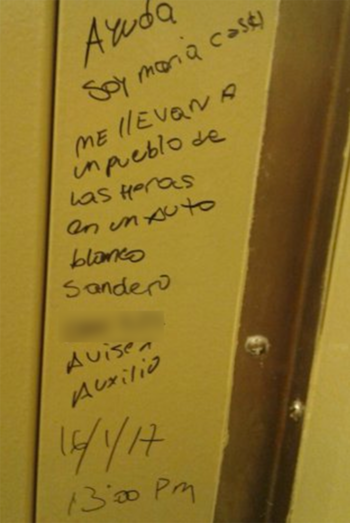 Ayuda
Soy maria
ME llEVAN A
un pueblo de
Las Heras
en un AUTO
blanco
Sandero
Avisen
Auxilio
16/1/17
13:00 Pm